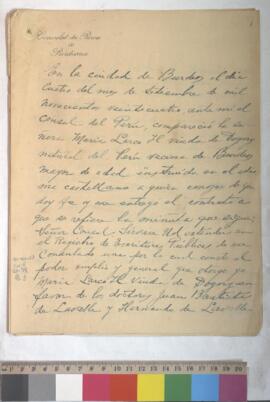 Consulat du Pérou
à
Bordeaux
En la ciudad de Burdeos, el dia
cuatro del mes de Setiembre de mil
novecientos veinticuatro, ante mi el
Consul del Perú, compareció la se
ñora Maria Larco H. viuda de
natural del Perú vecina de Burdeos,
mayor de edad instruida en el idio
ma castellano a quien conozco de que
doy fe y me entregó el contrato a
que se refiere la minuta que sigue:
Señor Consul: Sirvase Ud. extender en
el Registro de Escrituras Públicas de ese
Consulado una por la cual conste el
poder amplio y general que otorgo yo
Maria Larco H. Viuda de en
favor de los doctores Juan Bautista
de Lavalle y Hernando de Lavalle